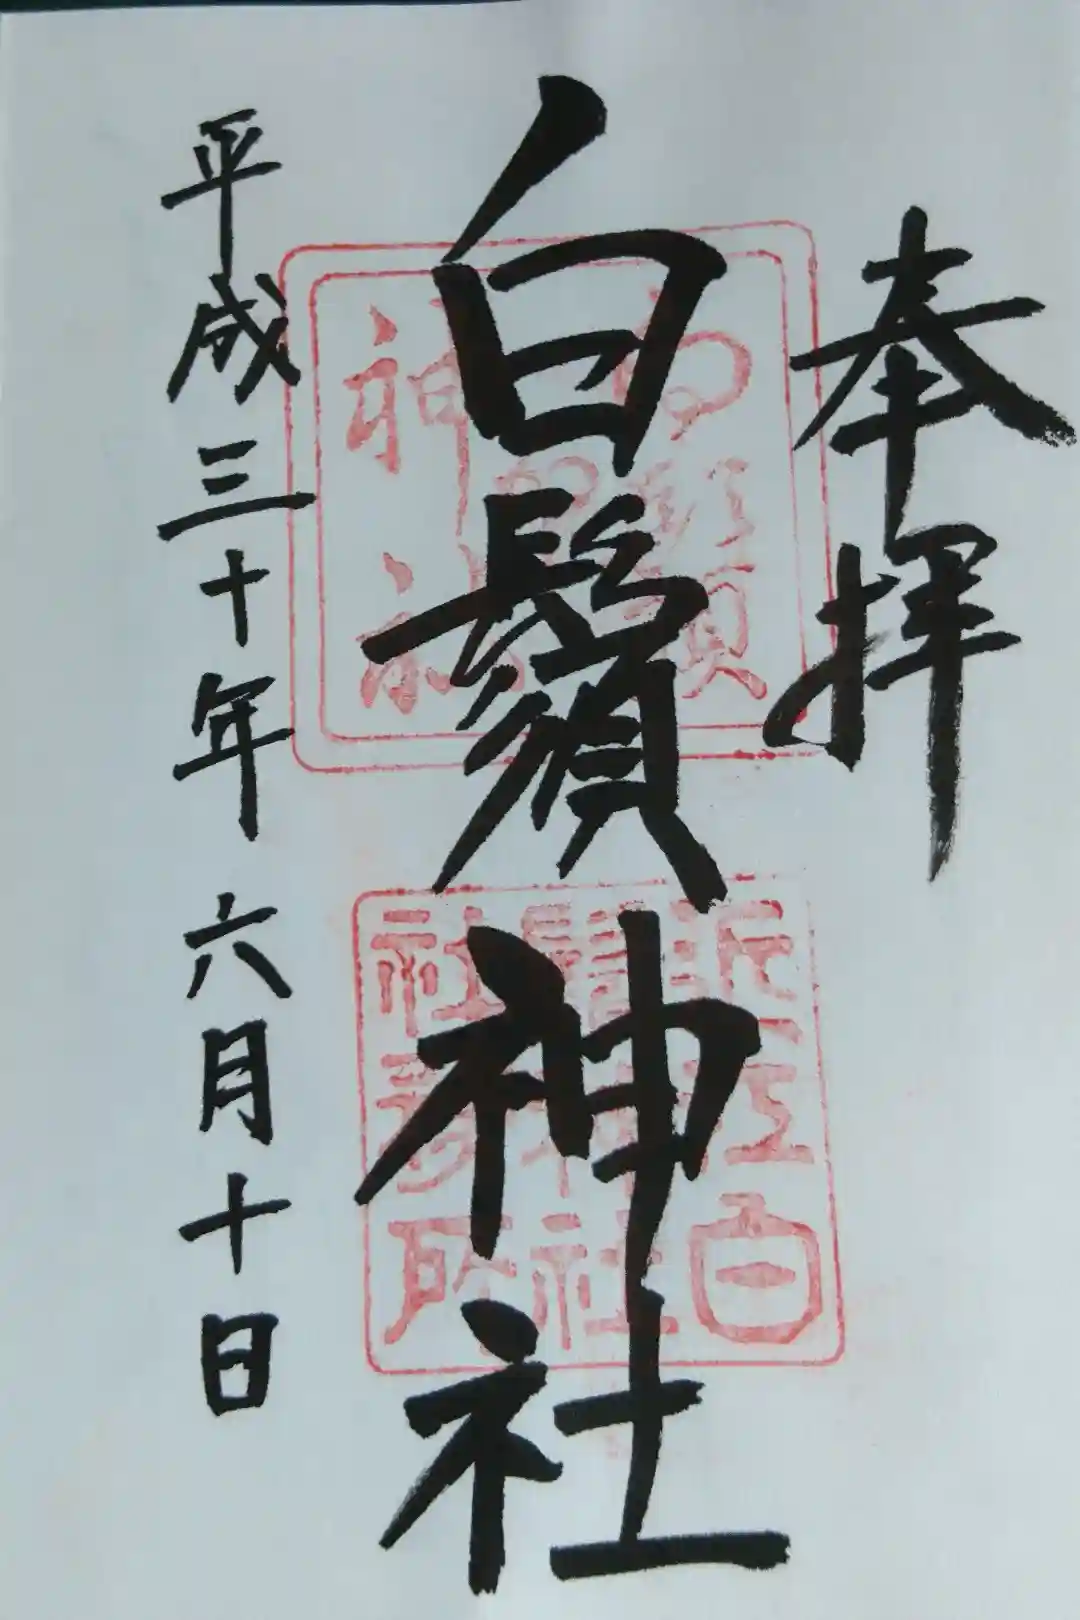 奉拝
白鬚神社
平成三十年六月十日
白鬚
神社
近江白
鬚神社
社務所